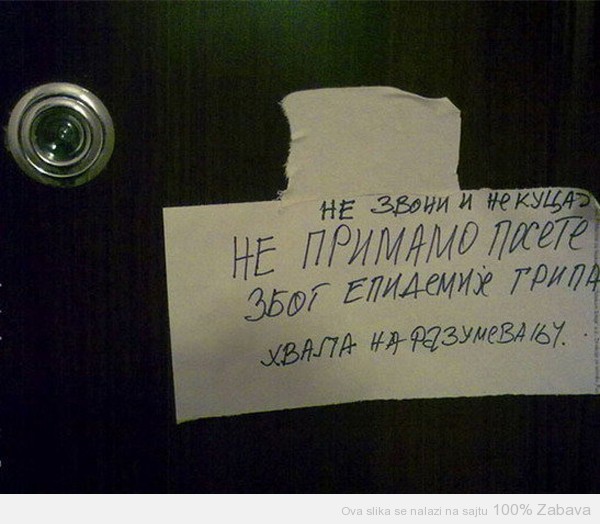 НЕ ЗВОНИ И НЕ КУЦАЈ
НЕ ПРИМАМО ПОСЕТЕ
ЗБОГ ЕПИДЕМИЈЕ ГРИПА
ХВАЛА НА РАЗУМЕВАЊУ.
Ova slika se nalazi na sajtu 100% Zabava